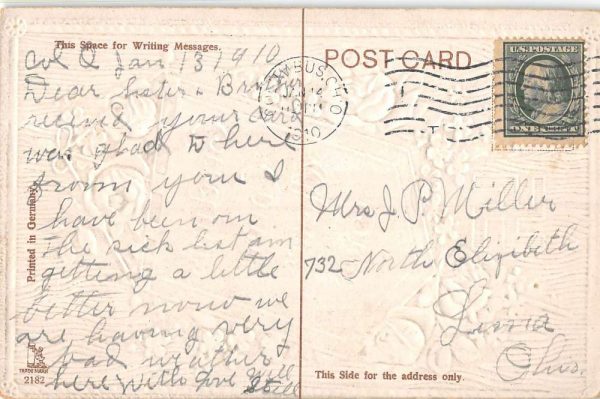 This Space for Writing Messages.
Col O Jan 13 1910
Dear Sister & Bro
recived your card
was glad to here
from you I
have been on
the sick list am
getting a little
better now we
are having very
bad weather
here With Love Will
Printed in Germany
TRADE MARK
2182
POST CARD
COLUMBUS, OHIO
1910
U.S. POSTAGE
ONE CENT
Mrs J. P. Miller
732 North Elizibeth
Lima
Ohio.
This Side for the address only.